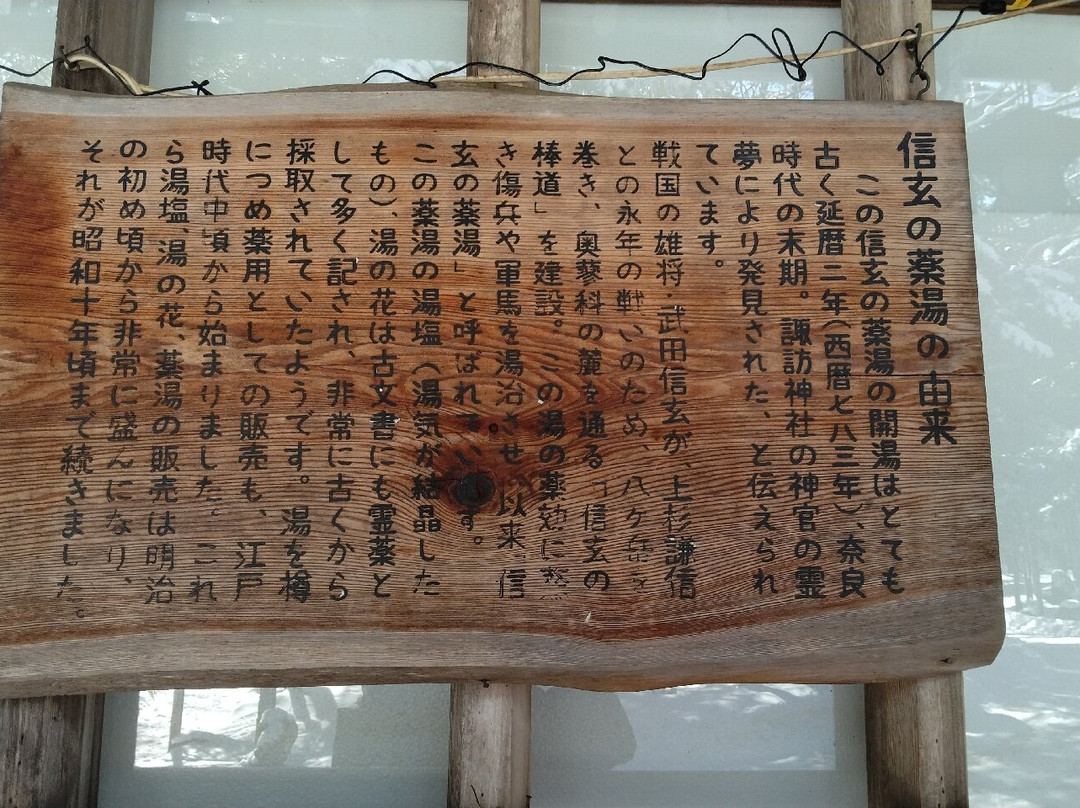 信玄の薬湯の由来
この信玄の薬湯の開湯はとても
古く延暦二年(西暦七八三年)、奈良
時代の末期。諏訪神社の神官の霊
夢により発見された、と伝えられ
ています。
戦国の雄将・武田信玄が、上杉謙信
との永年の戦いのため、八ヶ岳を
巻き、奥蓼科の麓を通る「信玄の
棒道」を建設。この湯の薬効に
き傷兵や軍馬を湯治させ 以来、信
玄の薬湯」と呼ばれています。
この薬湯の湯塩(湯気が結晶した
もの)、湯の花は古文書にも霊薬と
して多く記され、非常に古くから
採取されていたようです。湯を樽
につめ薬用としての販売も、江戸
時代中頃から始まりました。これ
ら湯塩、湯の花、薬湯の販売は明治
の初め頃から非常に盛んになり、
それが昭和十年頃まで続きました。